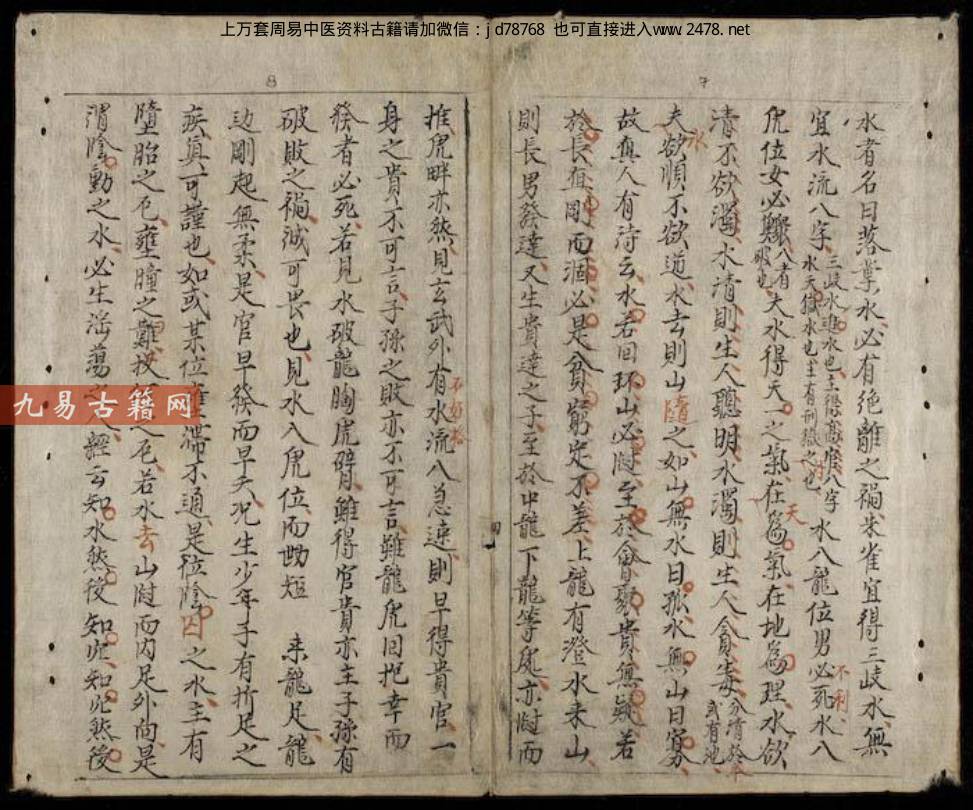 上万套周易中医资料古籍请加微信：jd78768 也可直接进入www.2478.net
7
水者名曰落業水必有绝離之禍朱雀宜得三歧水無
宜水流八字三歧水進水也主得高度八字
水天獄水也主有刑獄之也
水入龍位男必死水入
虎位女必難八者
破也
夫水得天一之氣在天為氣在地為理水欲
清不欲濁水清則生人聽明水濁則生人貪毒
或有池
夫水欲順不欲道水去則山隨之如山無水曰孤水無山曰寡
故真人有诗云水若回环山必尉至於會聚貴無疑若
於長直剛而涸必是貧窮定不差上龍有澄水来山
則長男發達又生貴達之子至於中龍下龍等處亦尉而
8
推虎畔亦然見玄武外有水流八急速則早得貴官一
身之貴不可言子孫之敗亦不可言雖龍虎回抱幸而
發者必死若見水破龍胸虎臂雖得官貴亦主子孫有
破敗之禍誠可畏也見水入虎位而短 来龍足龍
边剛起無柔是官早發而早夭况生少年子有折足之
疾真可謹也如或某位滞不通是位陰囚之水主有
墮胎之厄壅瞳之難之厄若水去山尉而内足外向是
渭陰動之水必生淫蕩之人經云知水然後知此知此然後
不利
九易古籍网